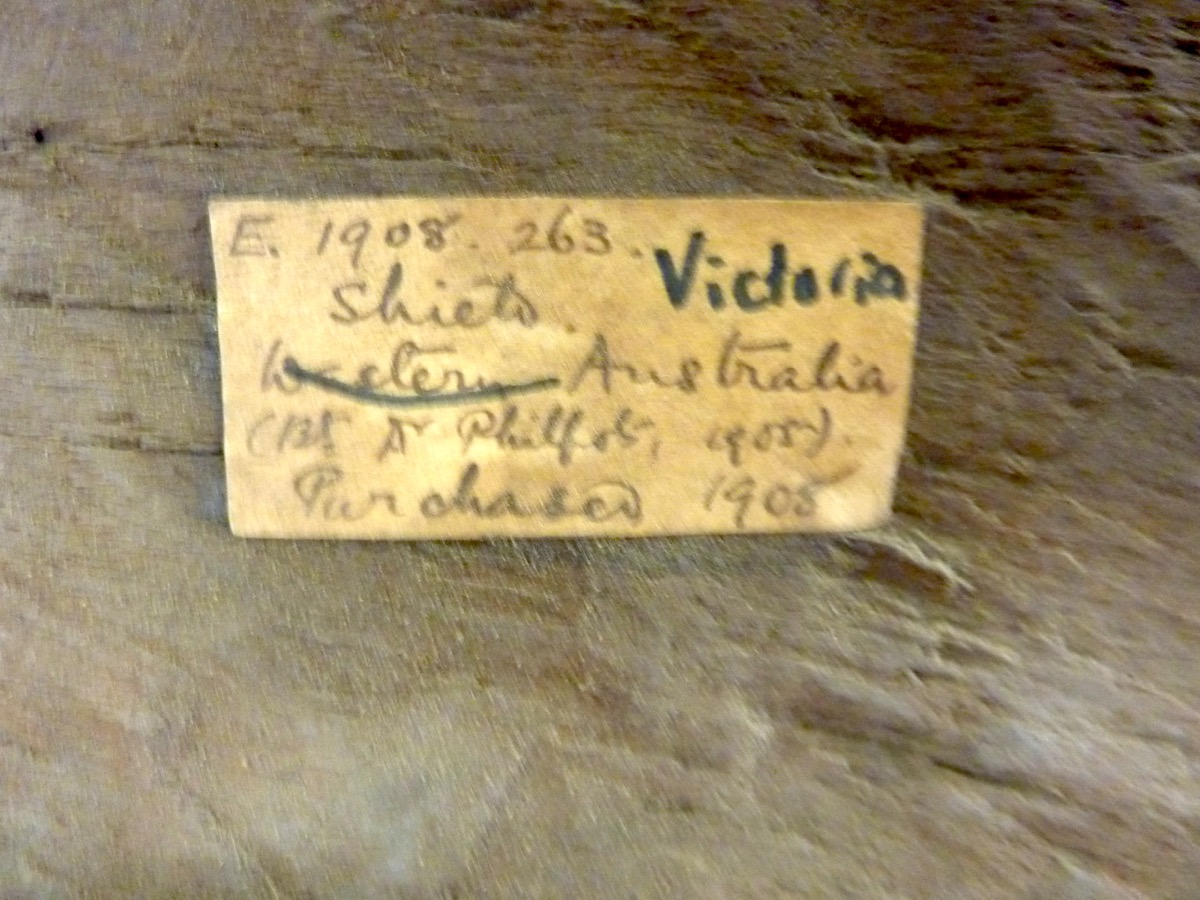 E. 1908. 263. Victoria
Shield.
Western Australia
Dr Philpot, 1908).
Purchased 1908